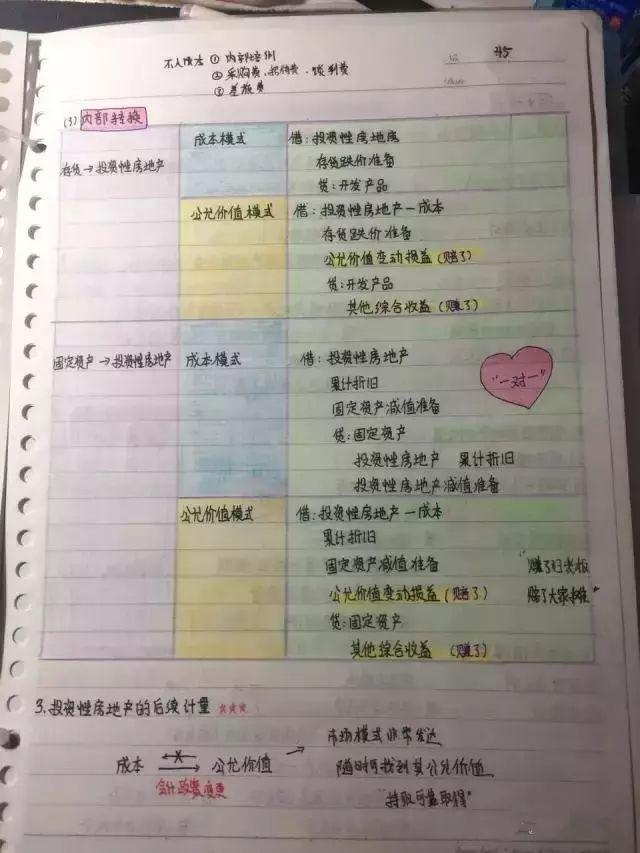 不入成本 ① 内部培训
② 采购费、招待费、谈判费
③ 差旅费
No
Date
(3) 内部转换
存货→投资性房地产
成本模式
借:投资性房地房
存货跌价准备
贷:开发产品
公允价值模式
借:投资性房地产—成本
存货跌价准备
公允价值变动损益(赔了)
贷:开发产品
其他综合收益(赚了)
固定资产→投资性房地产
成本模式
借:投资性房地产
累计折旧
固定资产减值准备
贷:固定资产
投资性房地产 累计折旧
投资性房地产减值准备
"一对一"
公允价值模式
借:投资性房地产—成本
累计折旧
固定资产减值准备
公允价值变动损益(赔了)
贷:固定资产
其他综合收益(赚了)
"赚了归老板
赔了大家摊"
3.投资性房地产的后续计量 ☆☆☆
成本 × 公允价值
会计政策变更
市场模式非常发达
随时可找到其公允价值
"持股可靠取得"